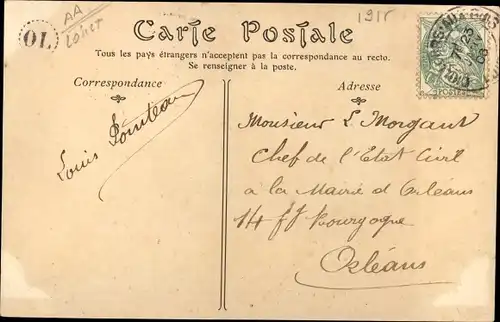 OL
AA
Loiret
Carte Postale
Tous les pays étrangers n'acceptent pas la correspondance au recto.
Se renseigner à la poste.
Correspondance
Adresse
Louis
Monsieur L. Morgant
Chef de l'Etat Civil
a la Mairie d'Orléans
14 ff Bourgogne
Orléans
23
08
POSTES